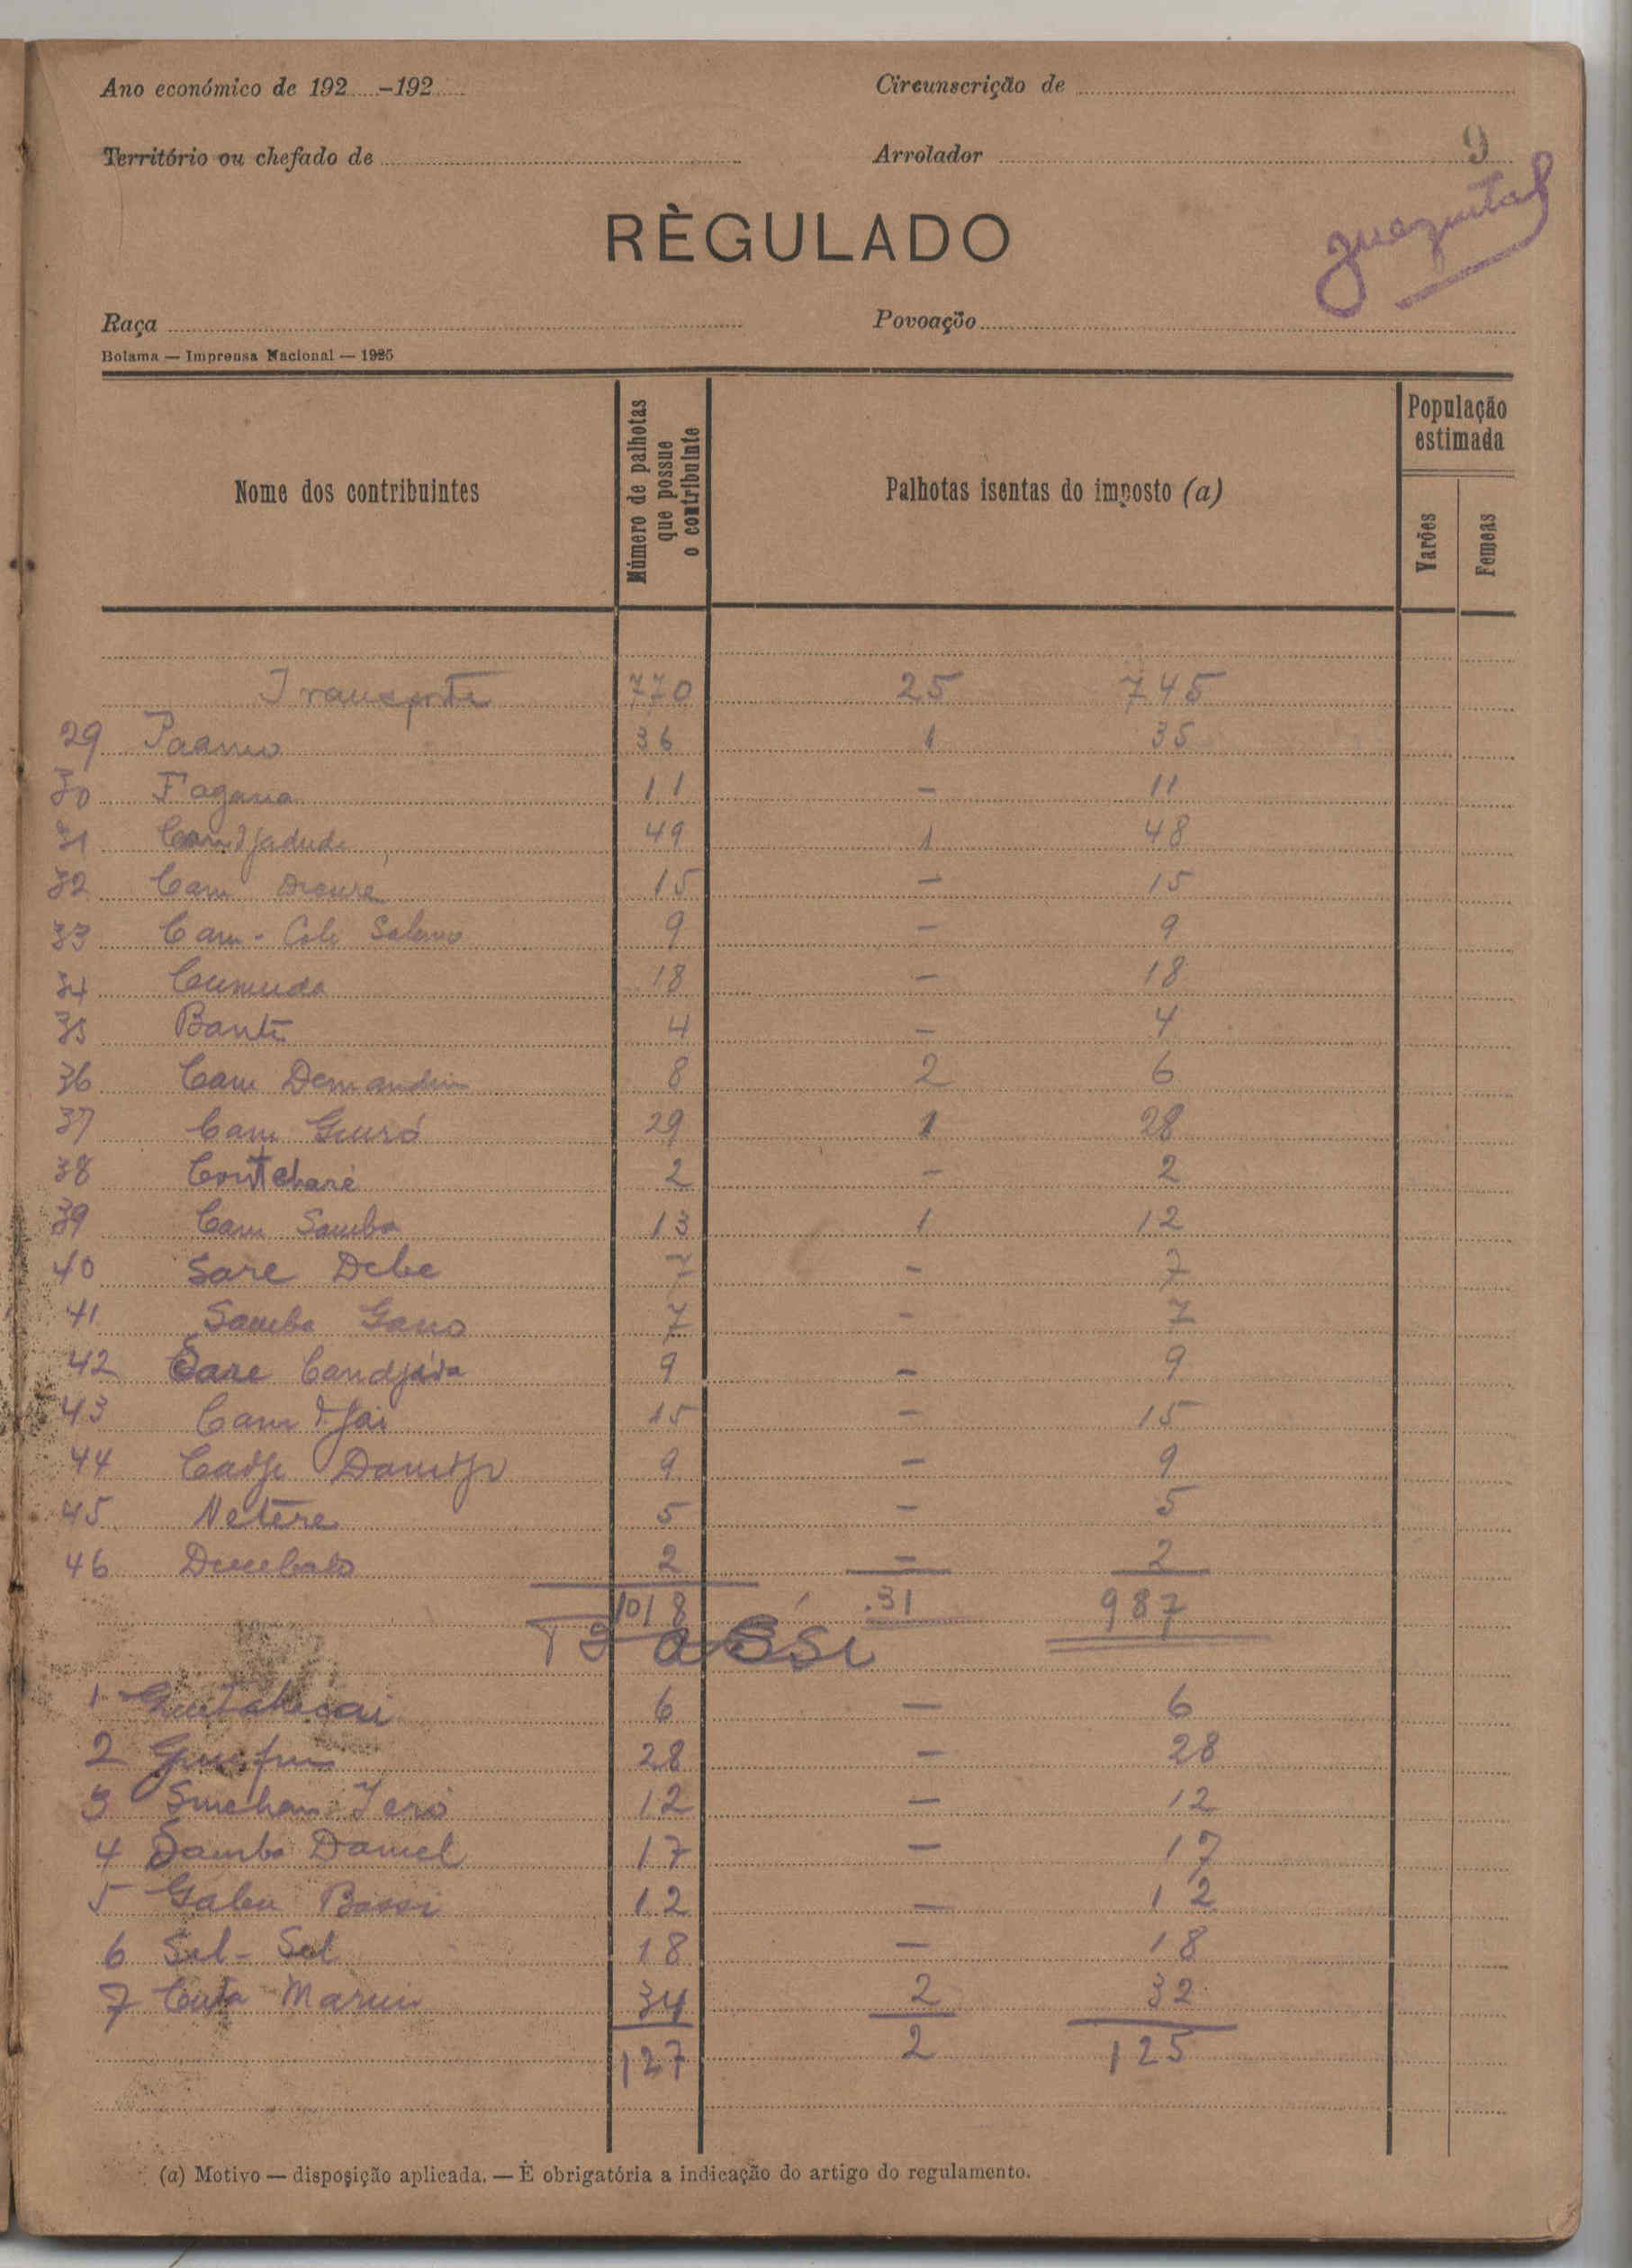 Ano económico de 192.....-192..... Circunscrição de
Território ou chefado de Arrolador 9
RÈGULADO
Raça Povoação
Bolama — Imprensa Nacional — 1925
Nome dos contribuintes
Número de palhotas que possue o contribuinte
Palhotas isentas do imposto (a)
População estimada
Varões
Femeas
Transporte 770 25 745
29 Paamo 36 1 35
30 Fagana 11 - 11
31 Camdjadude 49 1 48
32 Cam 15 - 15
33 Cam - Cole 9 - 9
34 Cumuda 18 - 18
35 Bante 4 - 4
36 Cam 8 2 6
37 Cam Guiró 29 1 28
38 Contcharé 2 - 2
39 Cam Samba 13 1 12
40 Sare Debe 7 - 7
41 Samba Gano 7 - 7
42 Sare Candjara 9 - 9
43 Cam djai 15 - 15
44 9 - 9
45 Netere 5 - 5
46 2 - 2
1018 31 987
1 6 — 6
2 28 — 28
3 Sincham Iero 12 — 12
4 Samba Daniel 17 — 17
5 Gabu Bassi 12 — 12
6 Sel-Sel 18 — 18
7 34 2 32
127 2 125
(a) Motivo — disposição aplicada. — É obrigatória a indicação do artigo do regulamento.